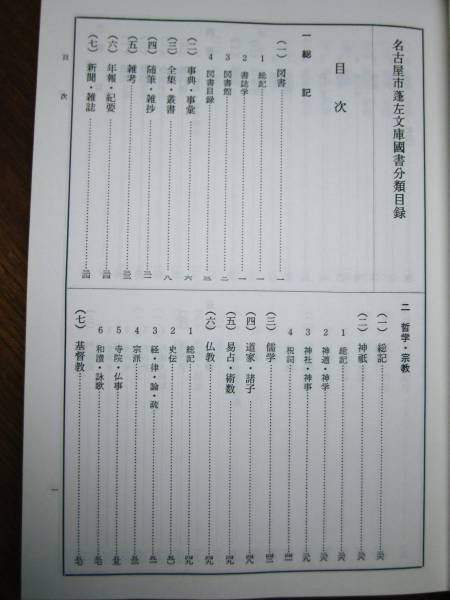 名古屋市蓬左文庫國書分類目録
目次
一 総記
(一) 図書……一
1 総記……一
2 書誌学……一
3 図書館……二
4 図書目録……三
(二) 事典・事彙……六
(三) 全集・叢書……八
(四) 随筆・雑抄
(五) 雑考
(六) 年報・紀要
(七) 新聞・雑誌
二 哲学・宗教
(一) 総記
(二) 神祇
1 総記
2 神道・神学
3 神社・神事
4 祝詞
(三) 儒学
(四) 道家・諸子
(五) 易占・術数
(六) 仏教
1 総記
2 史伝
3 経・律・論・疏
4 宗派
5 寺院・仏事
6 和讃・詠歌
(七) 基督教
目次
一